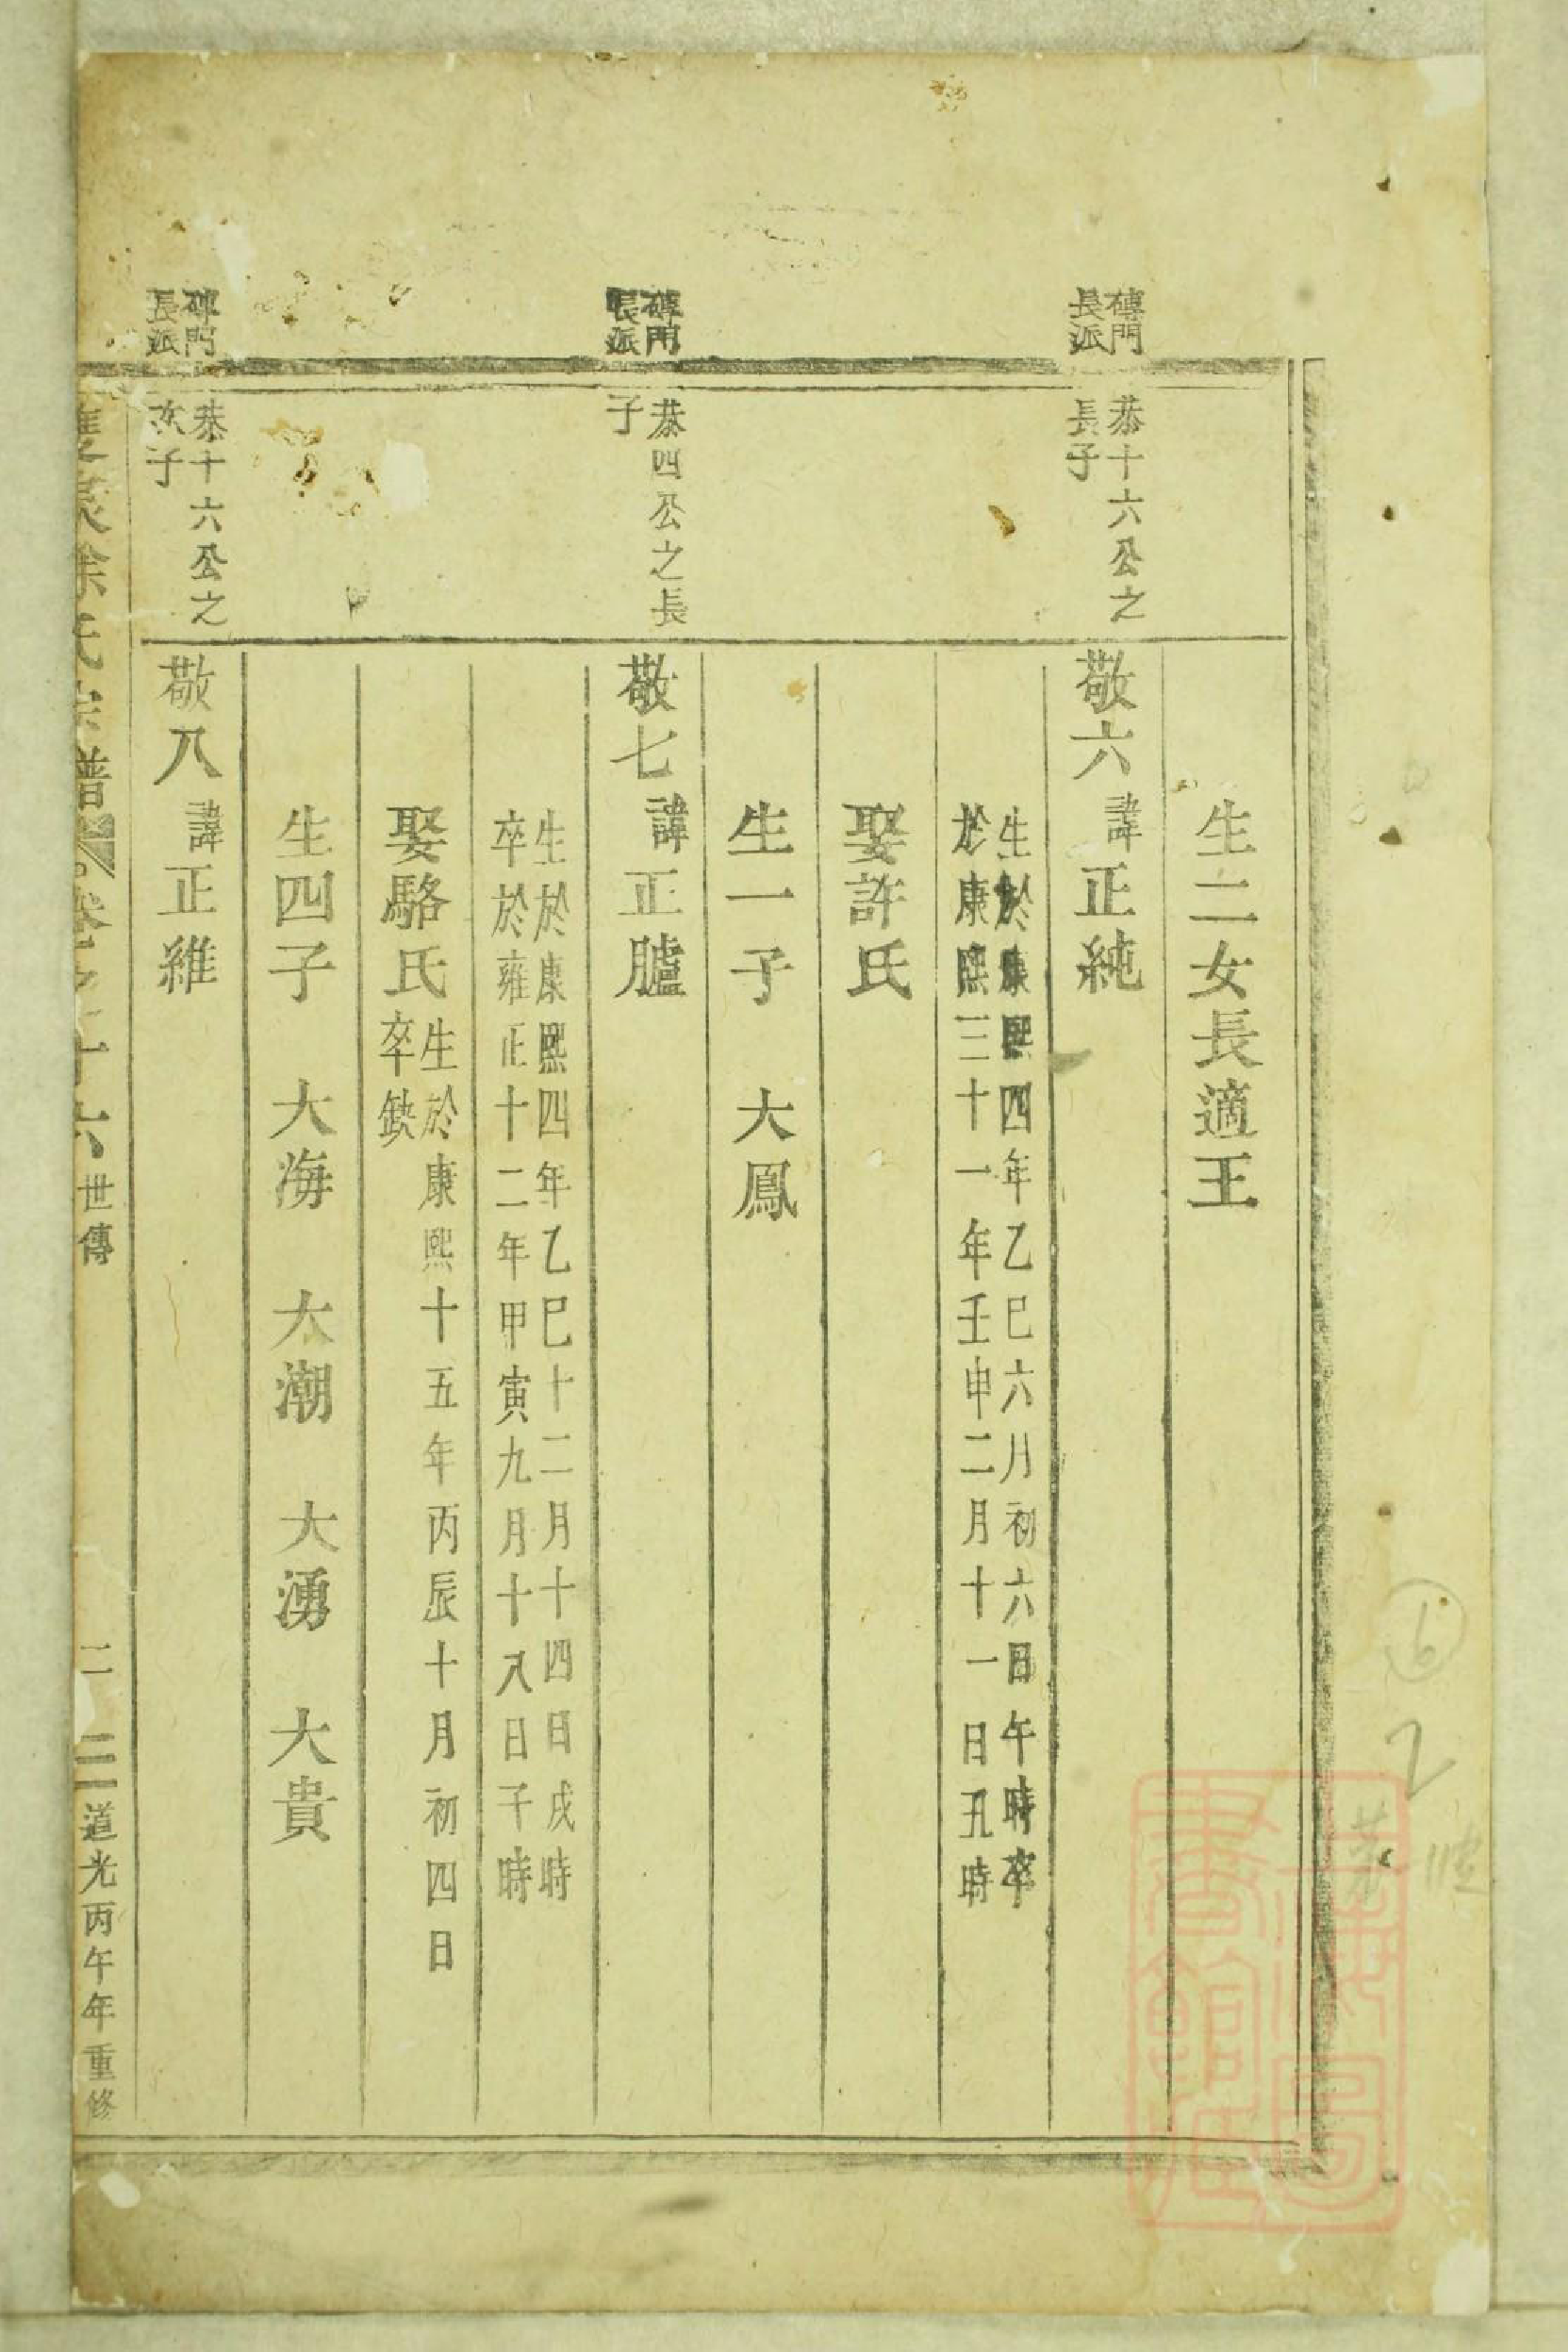 生二女長適王
磚門
長派
恭十六公之
長子
敬六諱正純
生於康熙四年乙巳六月初六日午時卒
於康熙三十一年壬申二月十一日丑時
娶許氏
生一子 大鳳
磚門
長派
恭四公之長
子
敬七諱正臚
生於康熙四年乙巳十二月十四日戌時
卒於雍正十二年甲寅九月十八日子時
娶駱氏
生於康熙十五年丙辰十月初四日
卒缺
生四子 大海 大潮 大湧 大貴
磚門
長派
恭十六公之
次子
敬八諱正維
氏宗譜
十六世傳
二
道光丙午年重修
6
2